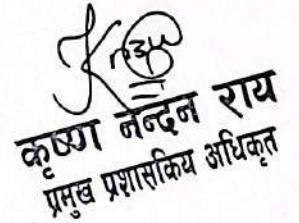 कृष्ण नन्दन राय
प्रमुख प्रशासकिय अधिकृत